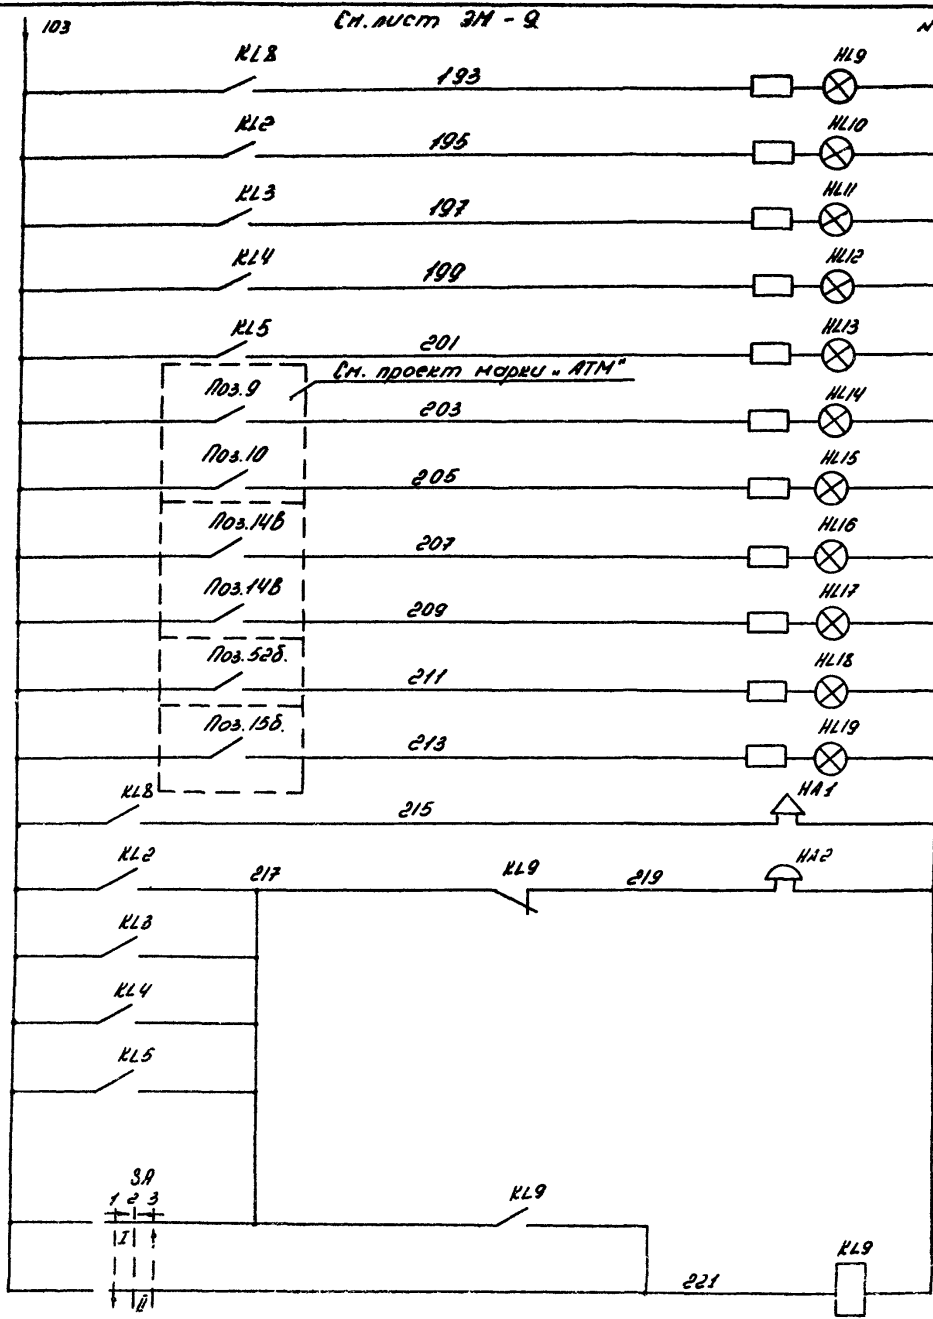 103
См. лист ЭМ - 9
N
KL8
193
HL9
KL2
195
HL10
KL3
197
HL11
KL4
199
HL12
KL5
201
HL13
См. проект марки "АТМ"
Поз.9
203
HL14
Поз.10
205
HL15
Поз.14в
207
HL16
Поз.14в
209
HL17
Поз.52б.
211
HL18
Поз.15б.
213
HL19
KL8
215
HA1
KL2
217
KL9
219
HA2
KL3
KL4
KL5
SA
1 2 3
KL9
I
KL9
221
II